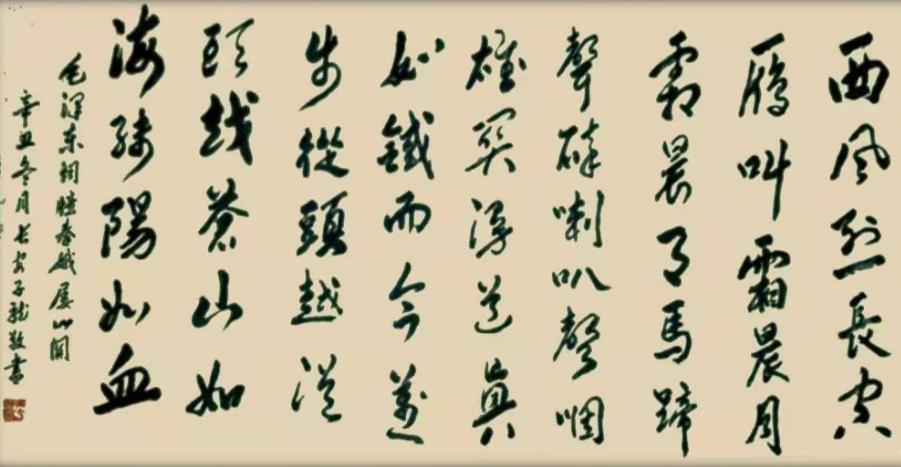 西風烈長空
雁叫霜晨月
霜晨月馬蹄
聲碎喇叭聲咽
雄關漫道眞
如鐵而今邁
步從頭越從
頭越蒼山如
海殘陽如血
毛澤東詞憶秦娥婁山關
辛丑冬月長安子龍敬書